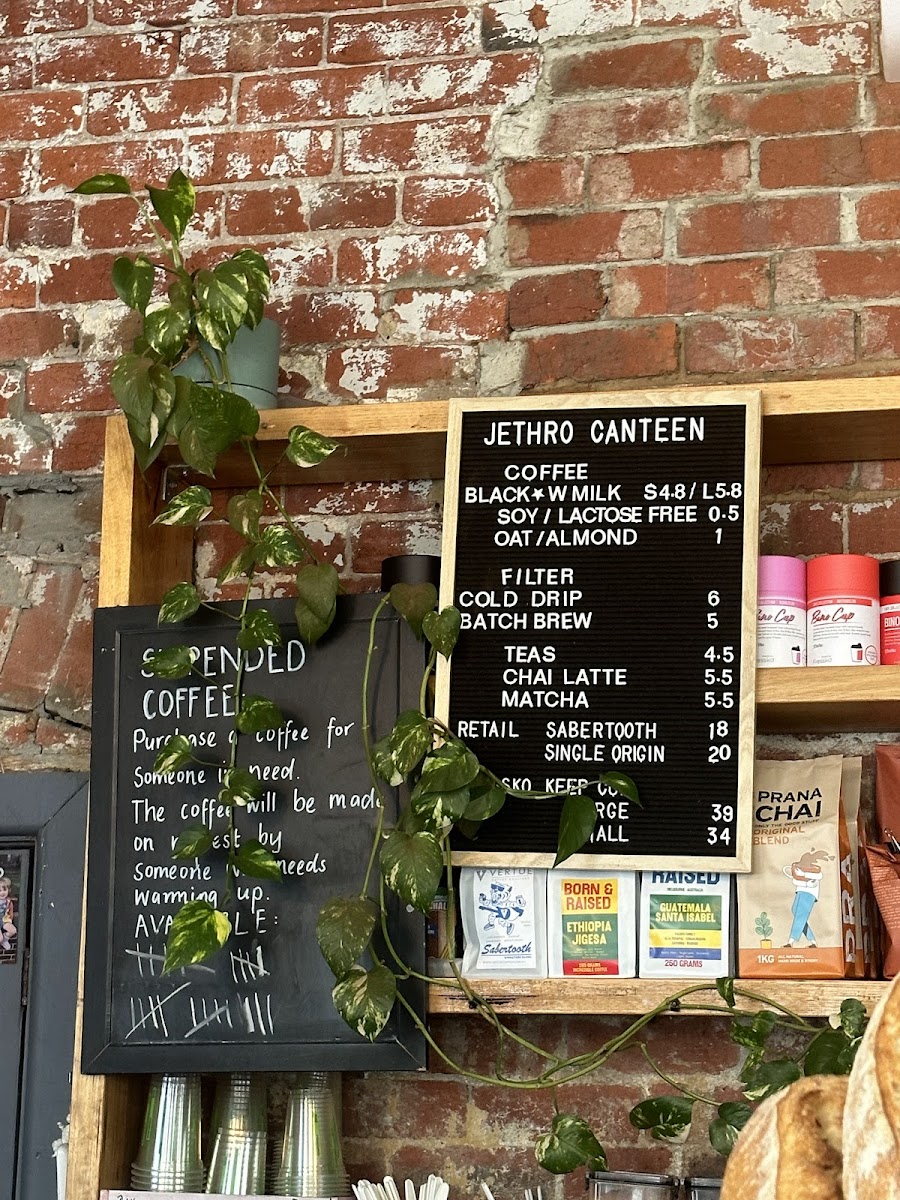 JETHRO CANTEEN
COFFEE
BLACK★W MILK S4.8 / L5.8
SOY / LACTOSE FREE 0.5
OAT / ALMOND 1
FILTER
COLD DRIP 6
BATCH BREW 5
TEAS 4.5
CHAI LATTE 5.5
MATCHA 5.5
RETAIL SABERTOOTH 18
SINGLE ORIGIN 20
SKO KEEP
39
34
SUSPENDED
COFFEE
Purchase a coffee for
Someone in need.
The coffee will be made
on request by
Someone who needs
warming up.
AVAILABLE:
Bino Cup
Bino Cup
BINO
PRANA
CHAI
ONLY THE GOOD STUFF
ORIGINAL
BLEND
1KG
VERTUE
Sabertooth
BORN &
RAISED
ETHIOPIA
JIGESA
250 GRAMS
RAISED
GUATEMALA
SANTA ISABEL
250 GRAMS